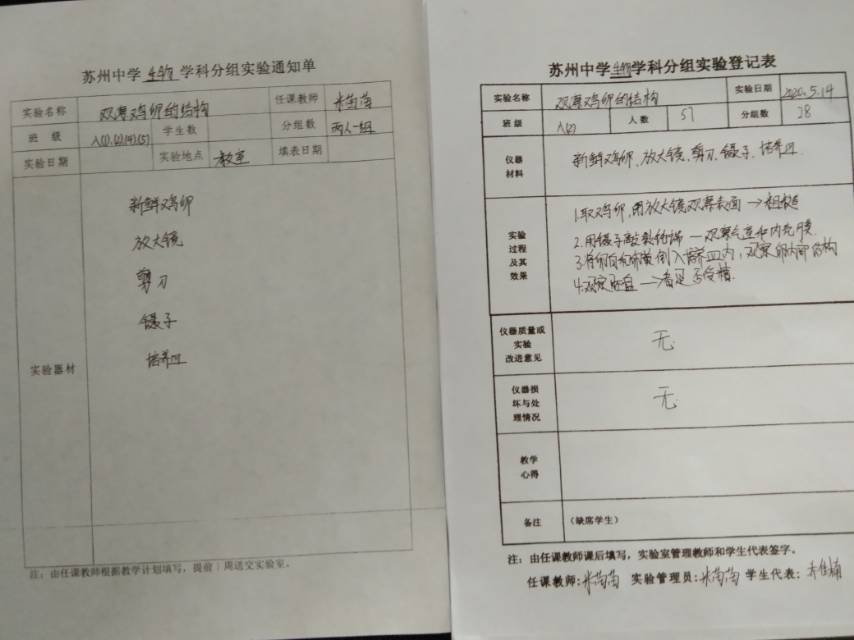 苏州中学生物学科分组实验通知单
实验名称 观察鸡卵的结构 任课教师
班 级 八(1).(2).(4).(5) 学生数 分组数 两人一组
实验日期 实验地点 教室 填表日期
实验器材
新鲜鸡卵
放大镜
剪刀
镊子
培养皿
注：由任课教师根据教学计划填写，提前1周送交实验室。
苏州中学生物学科分组实验登记表
实验名称 观察鸡卵的结构 实验日期 2020.5.14
班 级 八(2) 人 数 57 分组数 28
仪器
材料
新鲜鸡卵、放大镜、剪刀、镊子、培养皿
实验
过程
及其
效果
1.取鸡卵，用放大镜观察表面→粗糙
2.用镊子敲裂钝端—观察气室和内壳膜
3.将卵白和卵黄倒入培养皿内，观察卵内部结构
4.观察胚盘→看是否受精.
仪器质量或
实验
改进意见
无.
仪器损
坏与处
理情况
无.
教学
心得
备注 （缺席学生）
注：由任课教师课后填写，实验室管理教师和学生代表签字。
任课教师: 实验管理员: 学生代表: